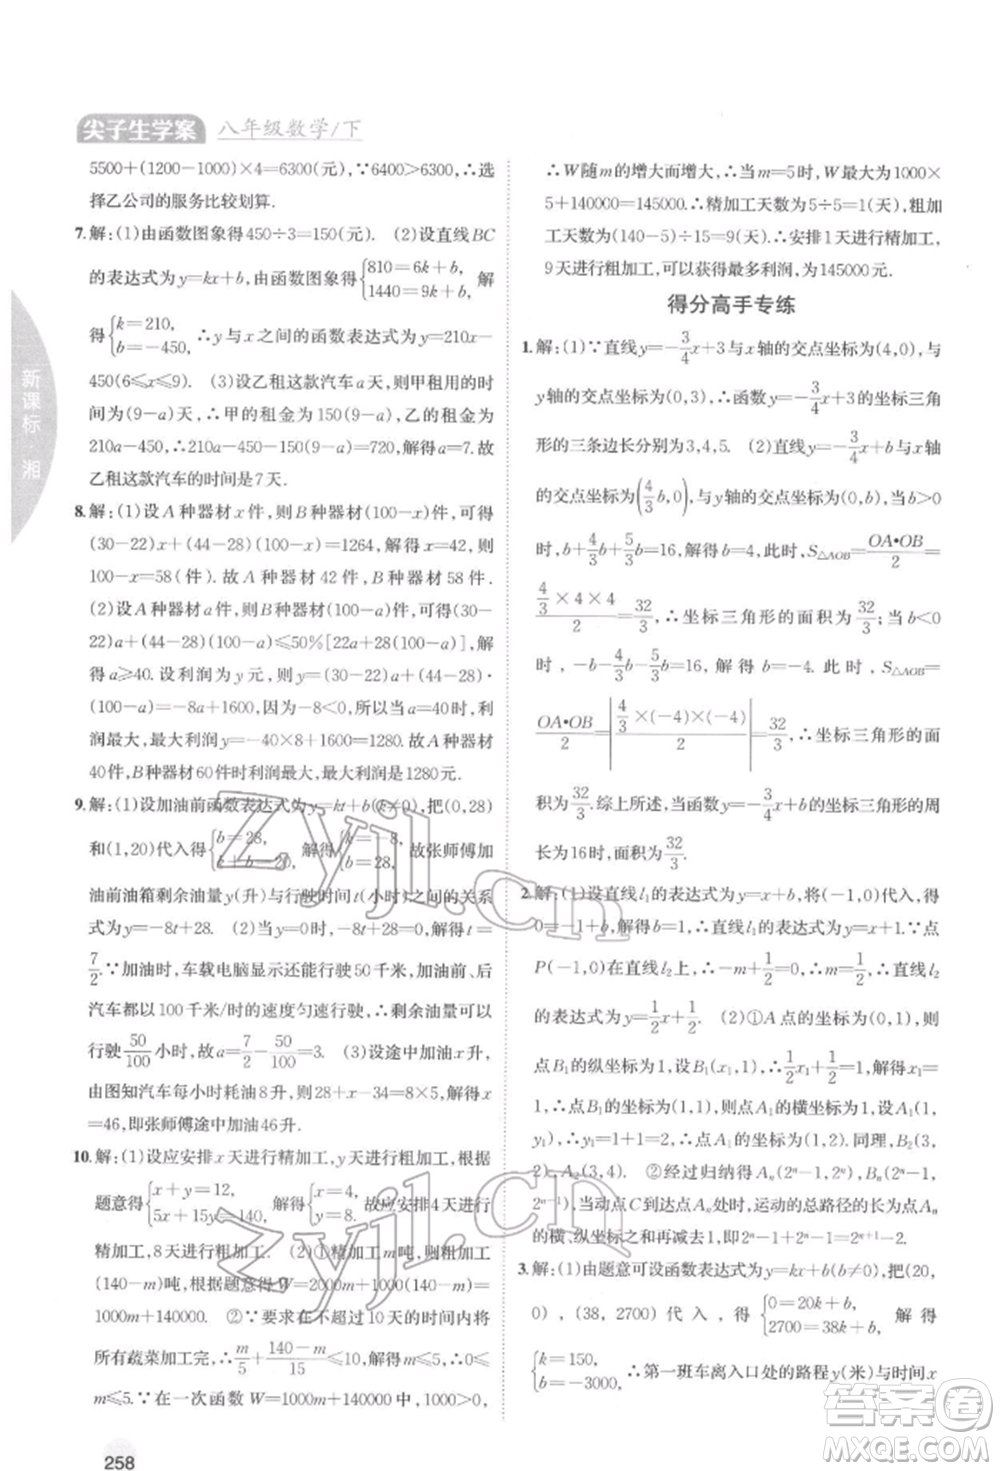 尖子生学案 八年级数学/下
新课标·湘
5500+(1200-1000)×4=6300(元),∵6400>6300,∴选
择乙公司的服务比较划算.
7.解:(1)由函数图象得450÷3=150(元). (2)设直线BC
的表达式为y=kx+b,由函数图象得{810=6k+b, 1440=9k+b, 解
得{k=210, b=-450, ∴y与x之间的函数表达式为y=210x-
450(6≤x≤9). (3)设乙租这款汽车a天,则甲租这款汽
车(9-a)天,∴甲的租金为150(9-a)元,乙的租金为
210a-450,∴210a-450-150(9-a)=720,解得a=7.故
乙租这款汽车的时间是7天.
8.解:(1)设A种器材x件,则B种器材(100-x)件,可得
(30-22)x+(44-28)(100-x)=1264,解得x=42,则
100-x=58(件).故A种器材42件,B种器材58件.
(2)设A种器材a件,则B种器材(100-a)件,可得(30-
22)a+(44-28)(100-a)≤50%[22a+28(100-a)],解
得a≥40.设利润为y元,则y=(30-22)a+(44-28)·
(100-a)=-8a+1600,因为-8<0,所以a=40时,总利
润最大,最大利润y=-40×8+1600=1280.故A种器材
40件,B种器材60件时利润最大,最大利润是1280元.
9.解:(1)设加油前函数表达式为y=kt+b(k≠0),把(0,28)
和(1,20)代入得{b=28, k+b=20, 解得{k=-8, b=28, 故张师傅加
油前油箱剩余油量y(升)与行驶时间t(小时)之间的关系
式为y=-8t+28. (2)当y=0时,-8t+28=0,解得t=
7/2.∵加油时,车载电脑显示还能行驶50千米,加油前、后
汽车都以100千米/时的速度匀速行驶,∴剩余油量可以
行驶50/100小时,故a=7/2-50/100=3. (3)设途中加油x升,则
由图知汽车每小时耗油8升,所以28+x-34=8×5,解得x
=46,即张师傅途中加油46升.
10.解:(1)设应安排x天进行精加工,y天进行粗加工,根据
题意得{x+y=12, 5x+15y=140, 解得{x=4, y=8, 故应安排4天进行
精加工,8天进行粗加工. (2)①精加工m吨,则粗加工
(140-m)吨,根据题意得W=2000m+1000(140-m)=
1000m+140000. ②∵要求在不超过10天的时间内将
所有蔬菜加工完,∴m/5+(140-m)/15≤10,解得m≤5.∴0<
m≤5.∵在一次函数W=1000m+140000中,k=1000>0,
∴W随m的增大而增大,∴当m=5时,W最大为1000×
5+140000=145000.∴精加工天数为5÷5=1(天),粗加
工天数为(140-5)÷15=9(天).∴安排1天进行精加工,
9天进行粗加工,可以获得最多利润,为145000元.
得分高手专练
1.解:(1)∵直线y=-3/4x+3与x轴的交点坐标为(4,0),与
y轴交点坐标为(0,3),∴函数y=-3/4x+3的坐标三角
形的三条边长分别为3,4,5. (2)直线y=-3/4x+b与x轴
的交点坐标为(4/3b,0),与y轴的交点坐标为(0,b),当b>0
时,b+4/3b+5/3b=16,解得b=4,此时,S△AOB=OA•OB/2=
(4/3×4×4)/2=32/3,∴坐标三角形的面积为32/3;当b<0
时,-b-4/3b-5/3b=16,解得b=-4.此时,S△AOB=
OA•OB/2=|4/3×(-4)×(-4)|/2=32/3,∴坐标三角形的面
积为32/3.综上所述,当函数y=-3/4x+b的坐标三角形的周
长为16时,面积为32/3.
2.解:(1)设直线l₁的表达式为y=x+b,将(-1,0)代入,得
0=-1+b,解得b=1,则直线l₁的表达式为y=x+1.∵点
P(-1,0)在直线l₂上,∴-m+1/2=0,∴m=1/2,∴直线l₂
的表达式为y=1/2x+1/2. (2)①A点的坐标为(0,1),则
点B₁的纵坐标为1,设B₁(x₁,1),∴1/2x₁+1/2=1,解得x₁=
1,∴点B₁的坐标为(1,1),则点A₁的横坐标为1,设A₁(1,
y₁),∴y₁=1+1=2,∴点A₁的坐标为(1,2).同理,B₂(3,
2),A₂(3,4). ②经过归纳得Aₙ(2ⁿ-1,2ⁿ),Bₙ(2ⁿ-1,
2ⁿ⁻¹),当动点C到达点Aₙ处时,运动的总路径的长为点Aₙ
的横、纵坐标之和再减去1,即2ⁿ-1+2ⁿ-1=2ⁿ⁺¹-2.
3.解:(1)由题意可设函数表达式为y=kx+b(k≠0),将(20,
0),(38,2700)代入,得{0=20k+b, 2700=38k+b, 解得
{k=150, b=-3000, ∴第一班车离入口处的路程y(米)与时间
258
zyjl.cn
zyjl.cn
答案圈
MXQE.COM